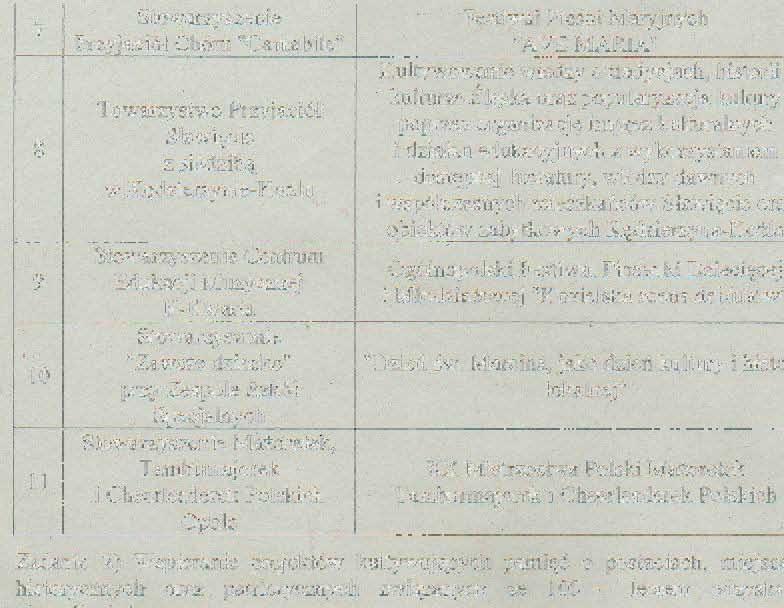 7 Stowarzyszenie
Przyjaciół Chóru "Cantabile"
Festiwal Pieśni Maryjnych
"AVE MARIA"
8 Towarzystwo Przyjaciół
Sławięcic
z siedzibą
w Kędzierzynie-Koźlu
Kultywowanie wiedzy o tradycjach, historii
kulturze Śląska oraz popularyzacja kultury
poprzez organizację imprez kulturalnych
i działań edukacyjnych z wykorzystaniem
dostępnej literatury, wiedzy dawnych
i współczesnych mieszkańców Sławięcic
obiektów zabytkowych Kędzierzyna-Koźla
9 Stowarzyszenie Centrum
Edukacji Muzycznej
Ogólnopolski Festiwal Piosenki Dziecięcej
i Młodzieżowej "Kozielska scena debiutów
10 Stowarzyszenie
"Zawsze dziecko"
przy Zespole Szkół
Specjalnych
"Dzień św. Marcina, jako dzień kultury i
lokalnej"
11 Stowarzyszenie Mażoretek,
Tamburmajorek
i Cheerleaderek Polskich
Opole
XX Mistrzostwa Polski Mażoretek
Tamburmajorek i Cheerleaderek Polskich
Zadanie 2) Wspieranie projektów kultywujących pamięć o postaciach,
historycznych oraz patriotycznych związanych ze 100 -